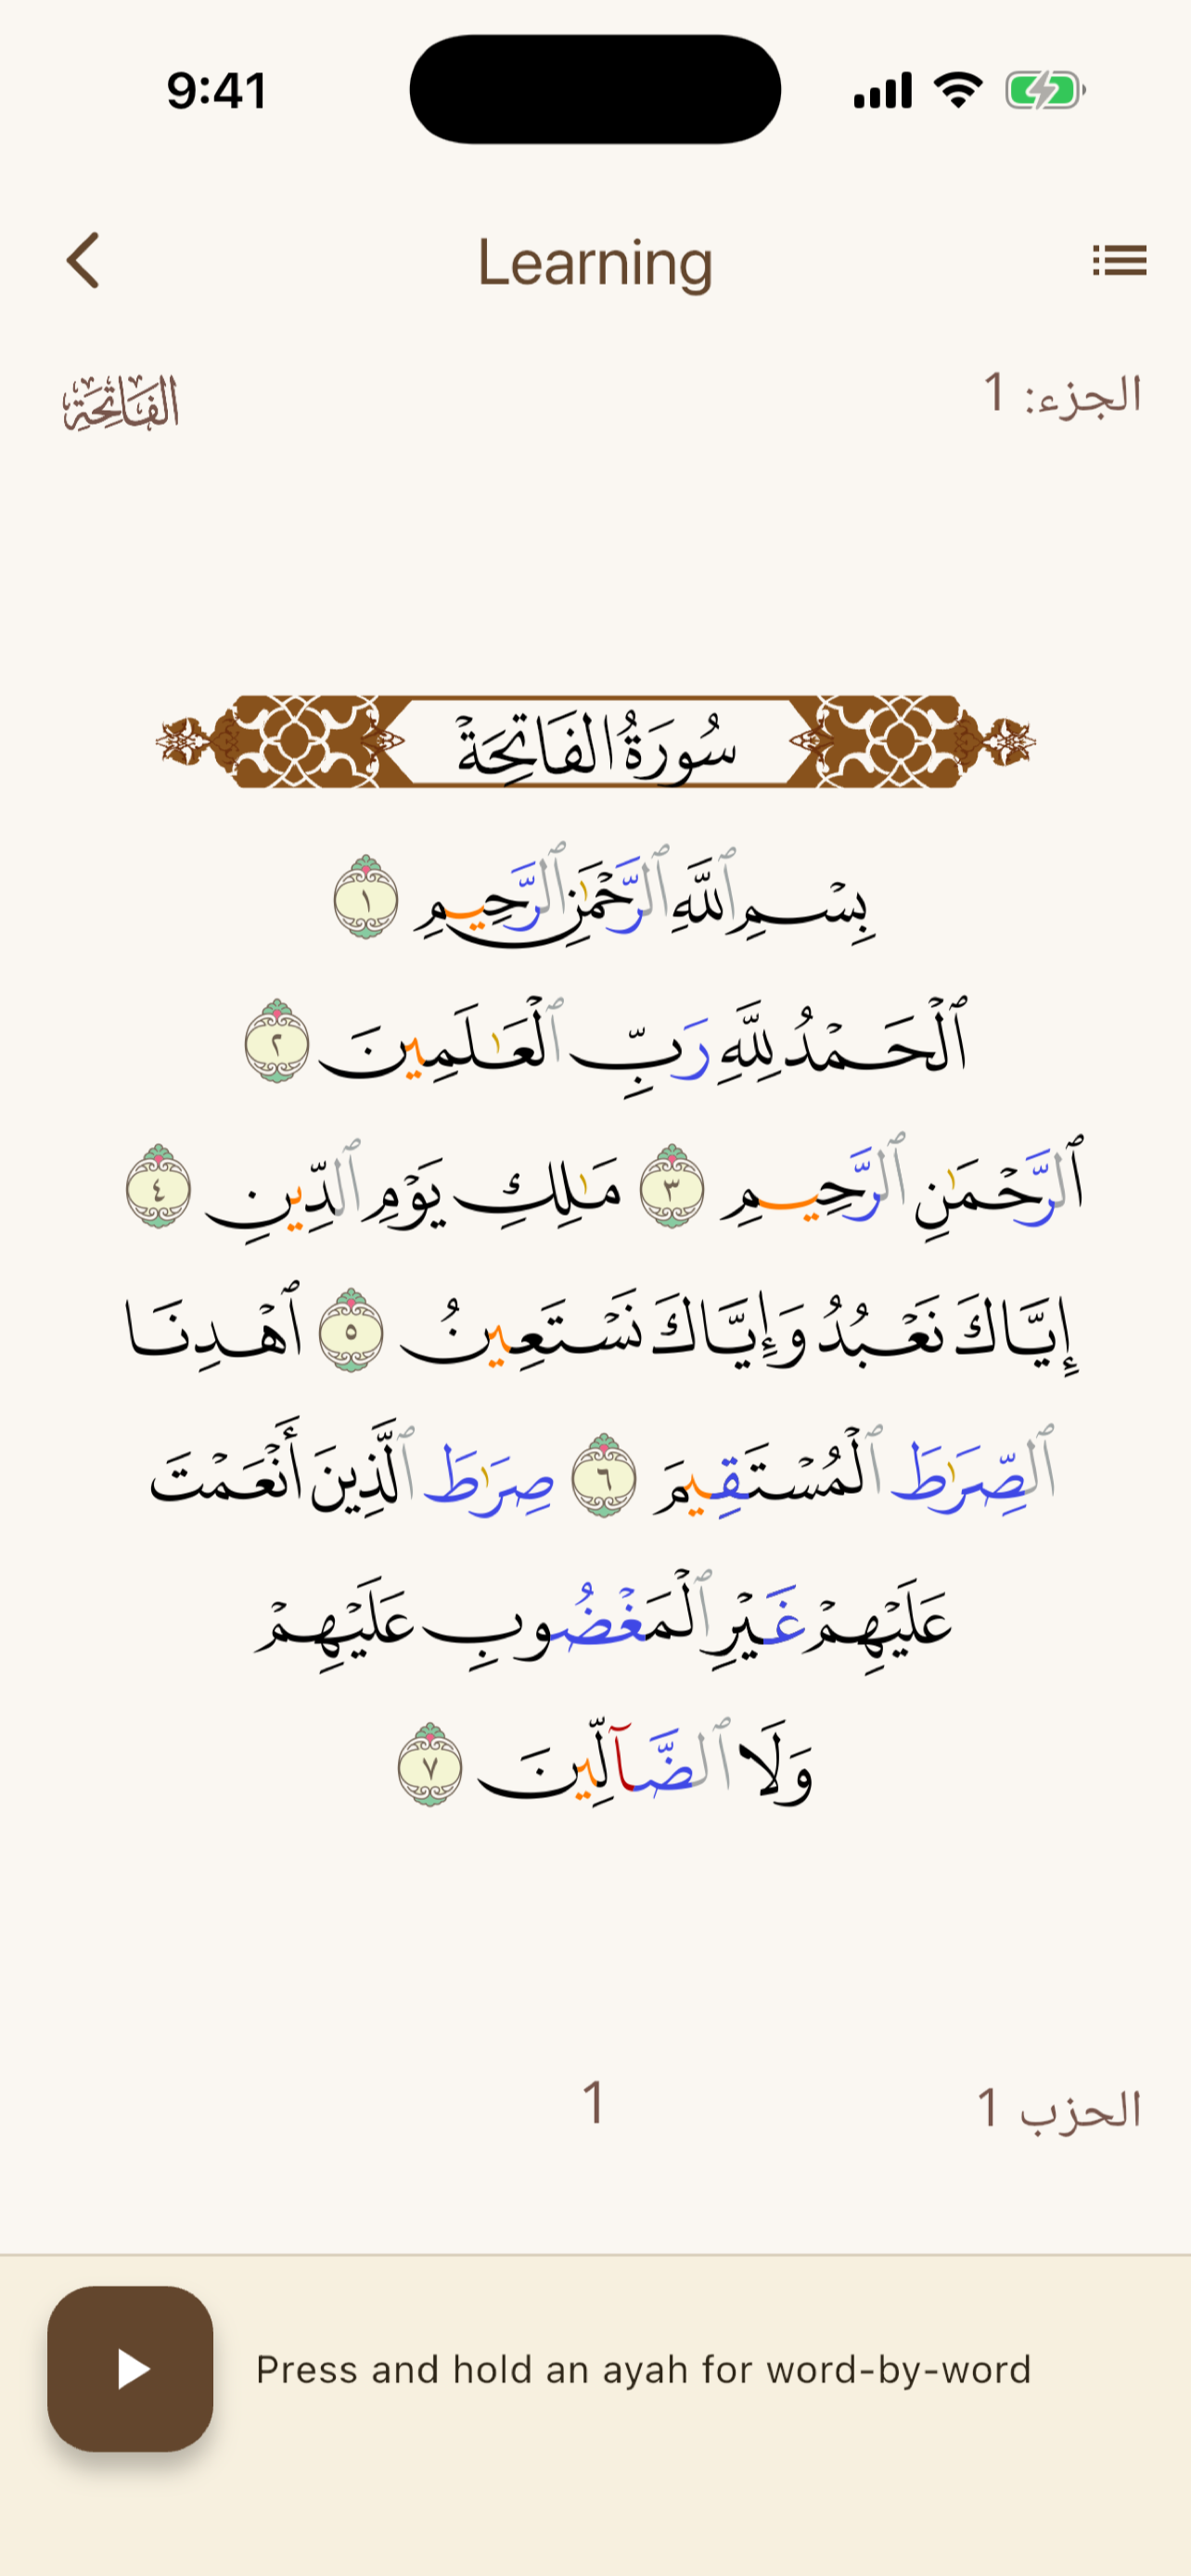 9:41
Learning
الفَاتِحَة
الجزء: 1
سُورَةُ الفَاتِحَة
بِسْمِ ٱللَّهِ ٱلرَّحْمَٰنِ ٱلرَّحِيمِ ١
ٱلْحَمْدُ لِلَّهِ رَبِّ ٱلْعَٰلَمِينَ ٢
ٱلرَّحْمَٰنِ ٱلرَّحِيمِ ٣ مَٰلِكِ يَوْمِ ٱلدِّينِ ٤
إِيَّاكَ نَعْبُدُ وَإِيَّاكَ نَسْتَعِينُ ٥ ٱهْدِنَا
ٱلصِّرَٰطَ ٱلْمُسْتَقِيمَ ٦ صِرَٰطَ ٱلَّذِينَ أَنْعَمْتَ
عَلَيْهِمْ غَيْرِ ٱلْمَغْضُوبِ عَلَيْهِمْ
وَلَا ٱلضَّآلِّينَ ٧
1
الحزب 1
Press and hold an ayah for word-by-word